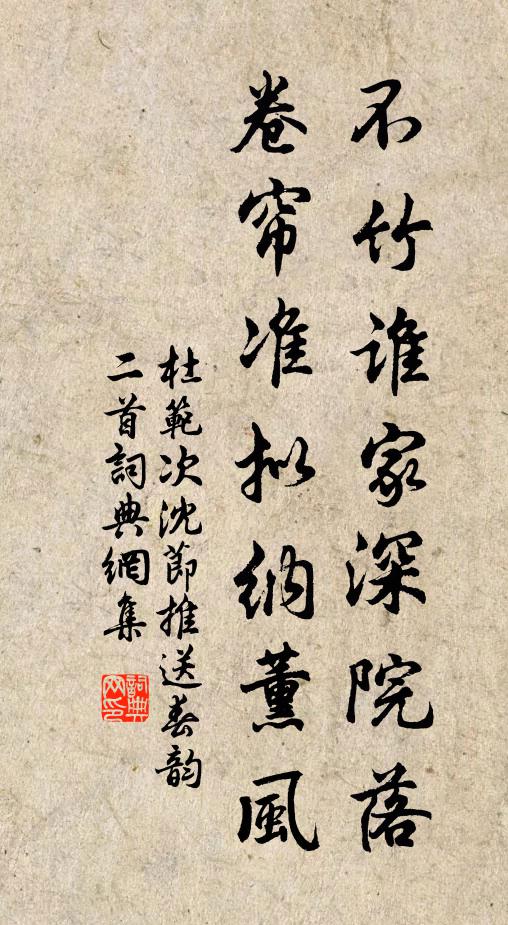 不竹谁家深院落
卷帘准拟纳薰風
杜範次沈節推送春韵
二首詞典網集
詞典网印